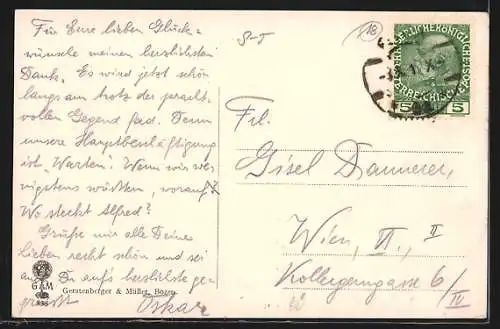 Für Eure lieben Glück-
wünsche meinen herzlichsten
Dank. Es wird jetzt schön
langsam trotz der pracht-
vollen Gegend fad. Denn
unsere Hauptbeschäftigung
ist "Warten". Wenn wir we-
nigstens wüßten, worauf?
Wo steckt Alfred?
Grüße mir alle Deine
Lieben recht schön und sei
Du aufs herzlichste ge-
grüsst Oskar
GAM
Gerstenberger & Müller, Bozen.
S-T
18
5 5
Frl.
Gisel Dannerer,
Wien, VI., II
Kollergerngasse 6/
IV